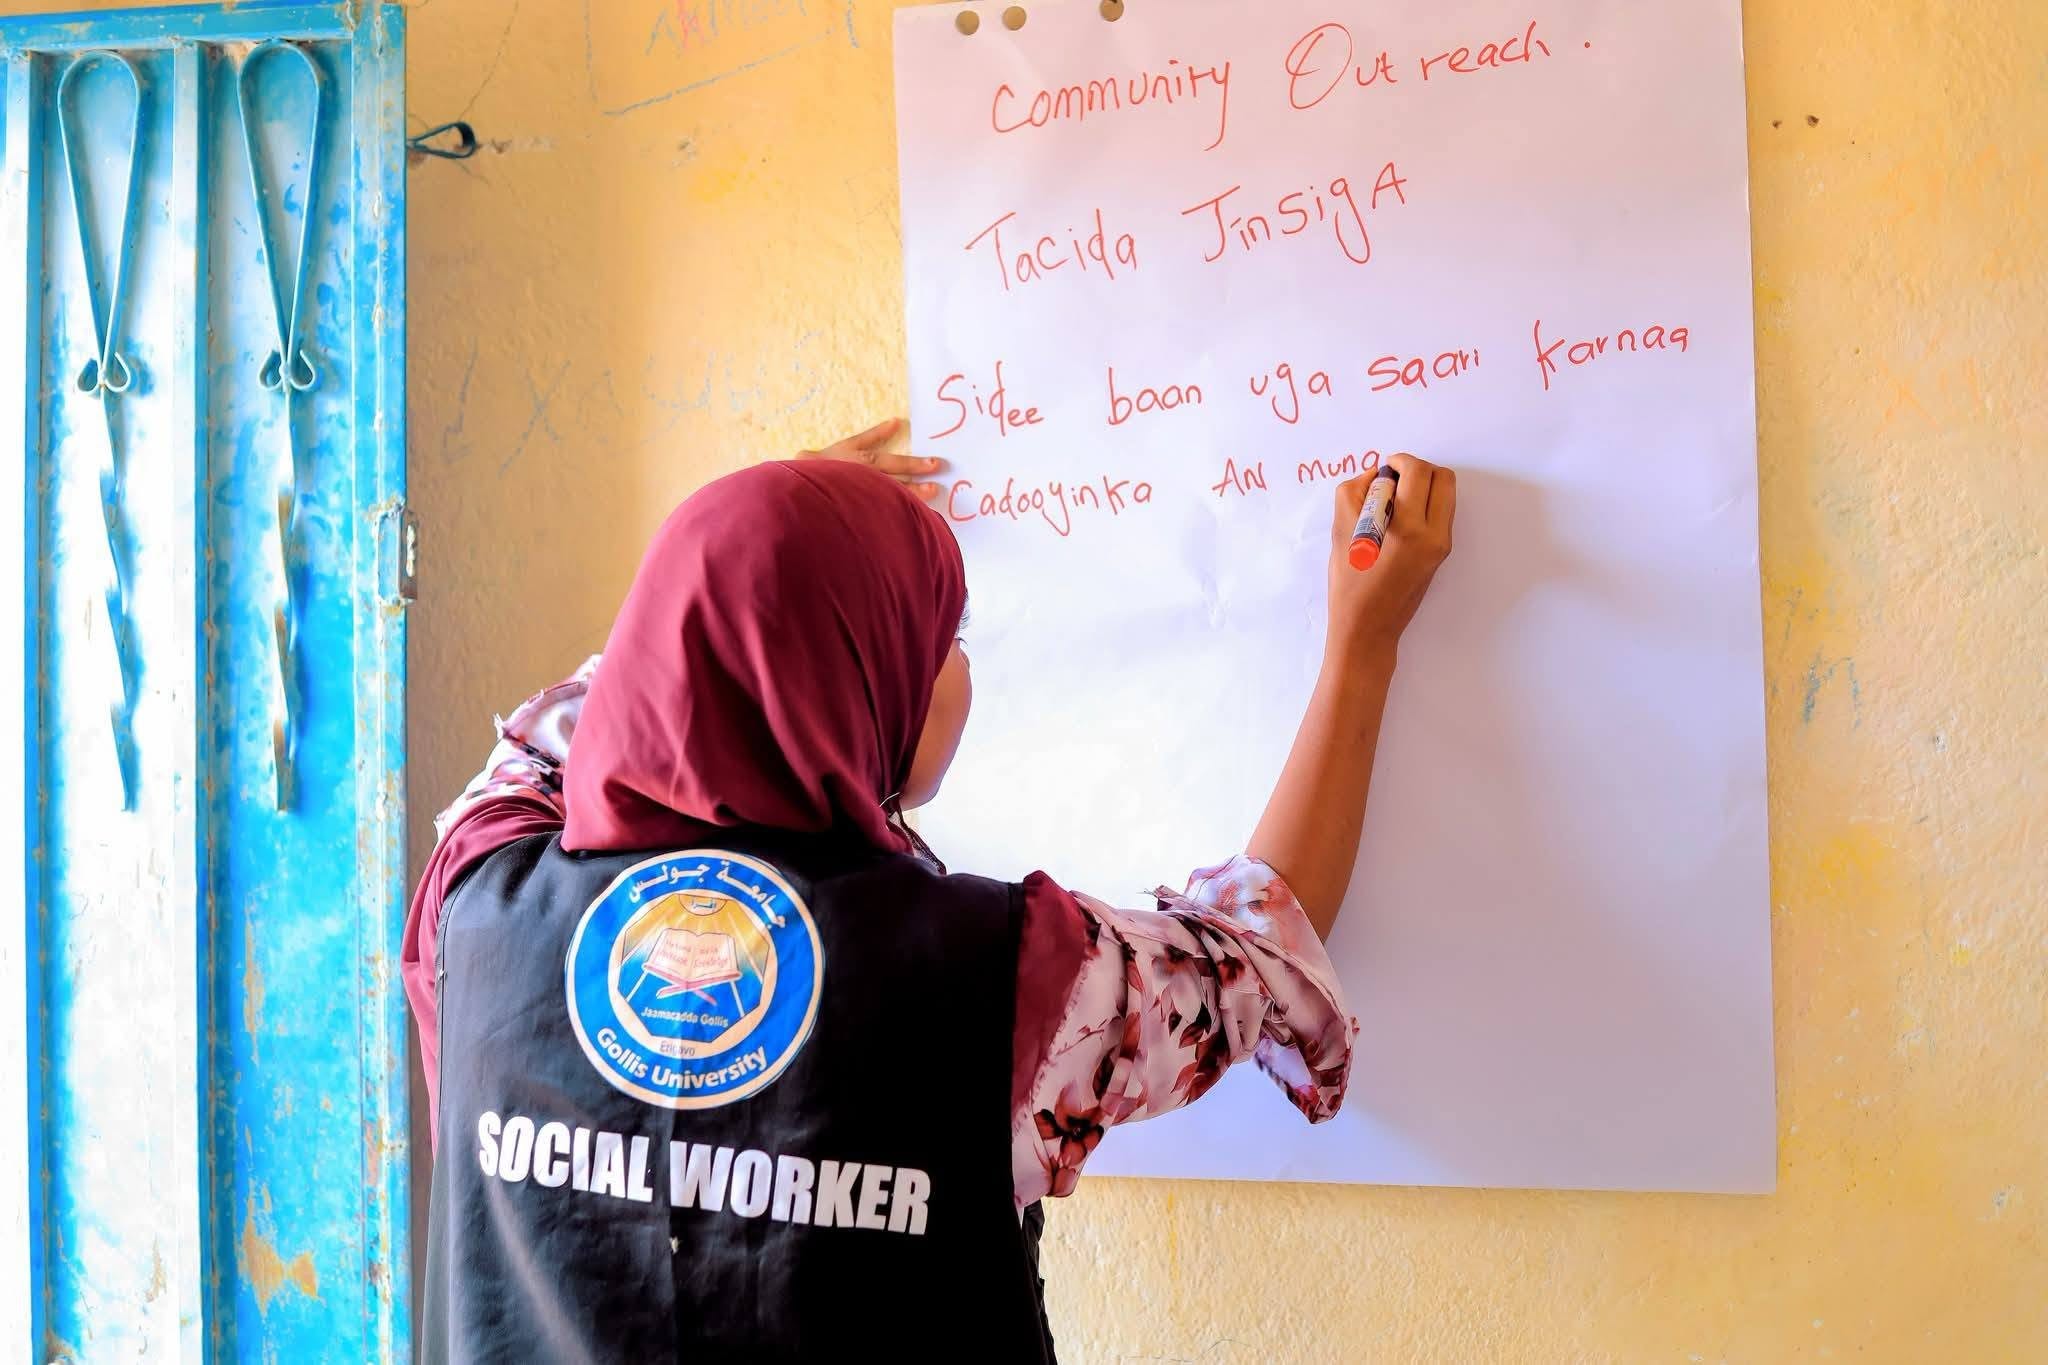 Community Outreach.
Tacida JinsigA
Sidee baan uga saari karnaa
Cadooyinka AN muna
جامعة جولس
اقرأ
Jaamacadda Gollis
Erigavo
Gollis University
SOCIAL WORKER